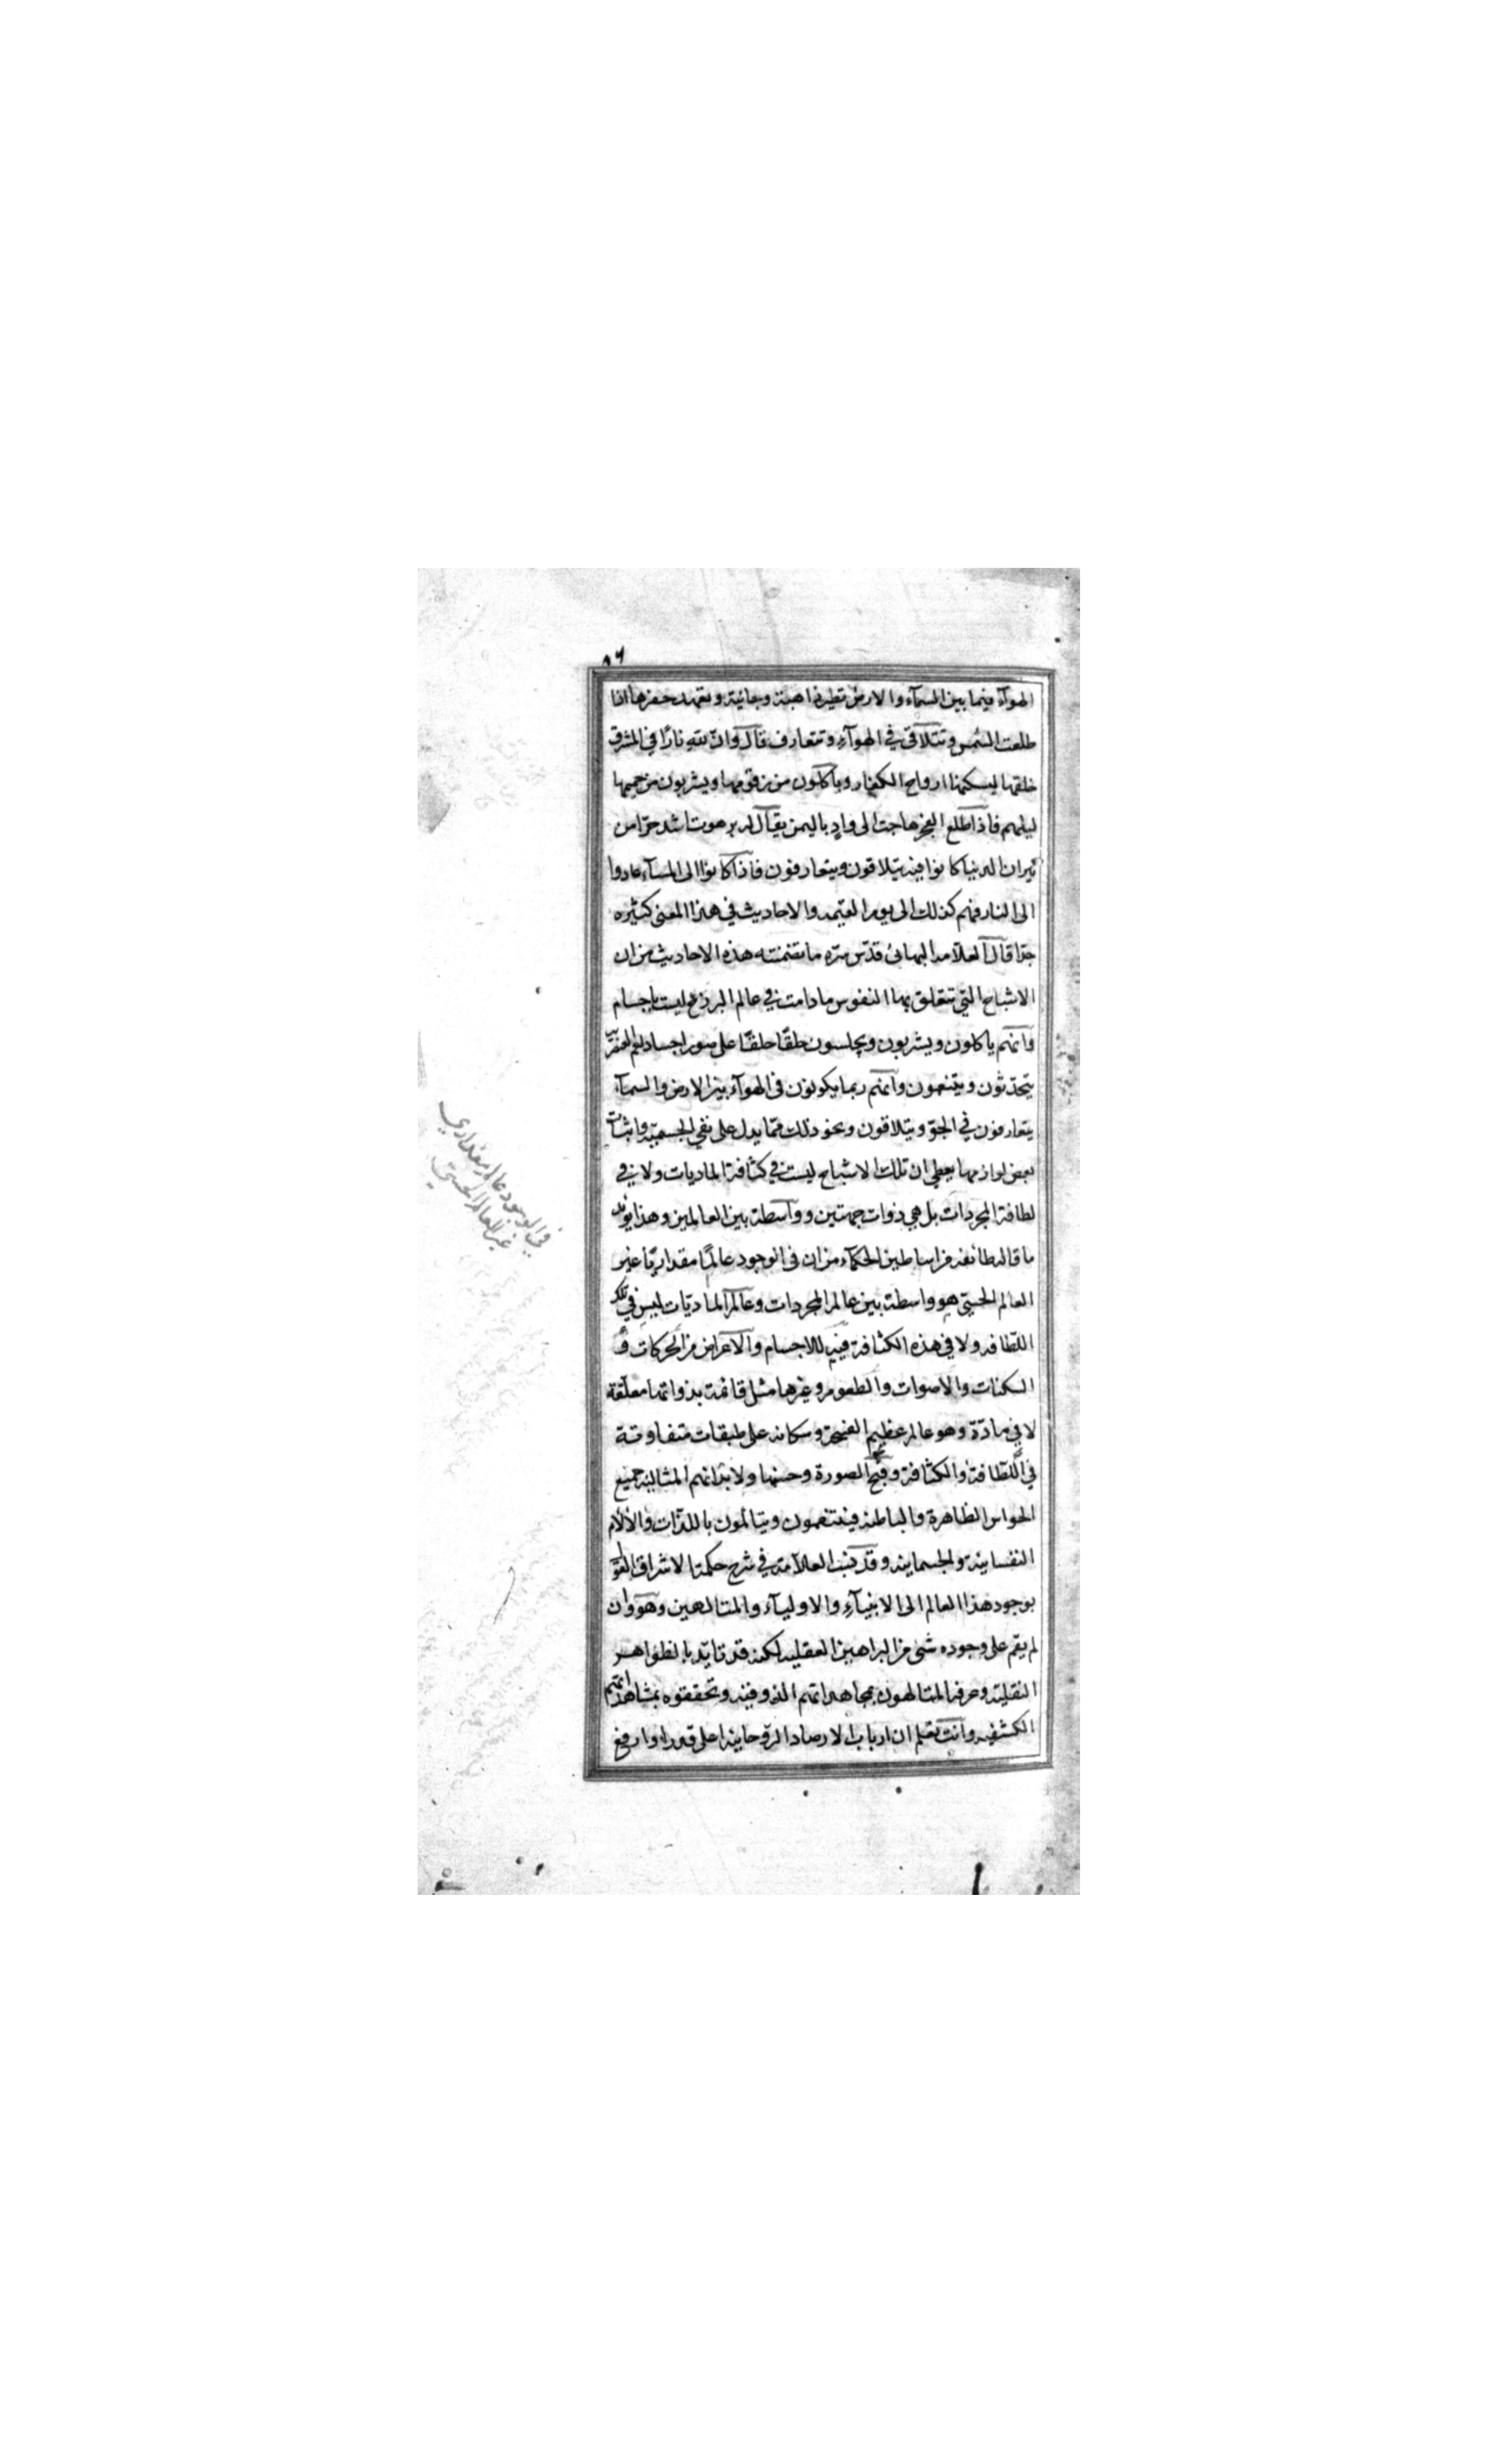 ٥٦
الهوآء فيما بين السمآء والارض تطير ذاهبة وجائية وتعهد حفرها اذا
طلعت الشمس وتتلاقى في الهوآء وتتعارف قال وان لله نارًا في المشرق
خلقها ليسكنها ارواح الكفار وياكلون من زقومها ويشربون من حميمها
ليلهم فاذا طلع الفجر هاجت الى وادٍ باليمن يقال له برهوت اشد حرّا من
نيران الدنيا كانوا فيه يتلاقون ويتعارفون فاذا كانوا الى المسآء عادوا
الى النار فهم كذلك الى يوم القيمه والاحاديث في هذا المعنى كثيره
جدّا قال العلّامه البهائى قدّس سرّه ما تضمنته هذه الاحاديث من ان
الاشباح التي تتعلق بها النفوس مادامت في عالم البرزخ ليست باجسام
وانهم ياكلون ويشربون ويجلسون حلقًا حلقًا على صور اجسادهم العنصريه
يتحدثون ويتنعمون وانهم ربما يكونون في الهوآء بين الارض والسمآء
يتعارفون في الجوّ ويتلاقون ونحو ذلك مما يدل على نفي الجسميّة واثبات
بعض لوازمها يعطي ان تلك الاشباح ليست في كثافة الماديات ولا في
لطافة المجردات بل هي ذوات جهتين وواسطة بين العالمين وهذا يؤيد
ما قاله طائفه من اساطين الحكمآء من ان في الوجود عالمًا مقداريًا غير
العالم الحسّي هو واسطة بين عالم المجردات وعالم الماديّات ليس في تلك
اللّطافه ولا في هذه الكثافة فيه للاجسام والاعراض من الحركات و
السكنات والاصوات والطعوم وغيرها مثل قائمة بذواتها معلّقة
لا في مادّة وهو عالم عظيم الفسحة وسكانه على طبقات متفاوتة
في اللّطافة والكثافة وقبح الصورة وحسنها ولابدانهم المثالية جميع
الحواس الظاهرة والباطنه فيتنعمون ويتالمون باللذّات والالآم
النفسانية والجسمانيه وقد نسب العلاّمة في شرح حكمة الاشراق القول
بوجود هذا العالم الى الانبيآء والاوليآء والمتالهين وهو وان
لم يقم على وجوده شى من البراهين العقليه لكنه قد تايّد بالظواهر
النقلية وعرفه المتالهون بمجاهداتهم الذوقيه وتحققوه بمشاهداتهم
الكشفيه وانت تعلم ان ارباب الارصاد الروحانيه اعلى قدرا وارفع
في الوجود عالم مقداري
غير العالم الحسّي